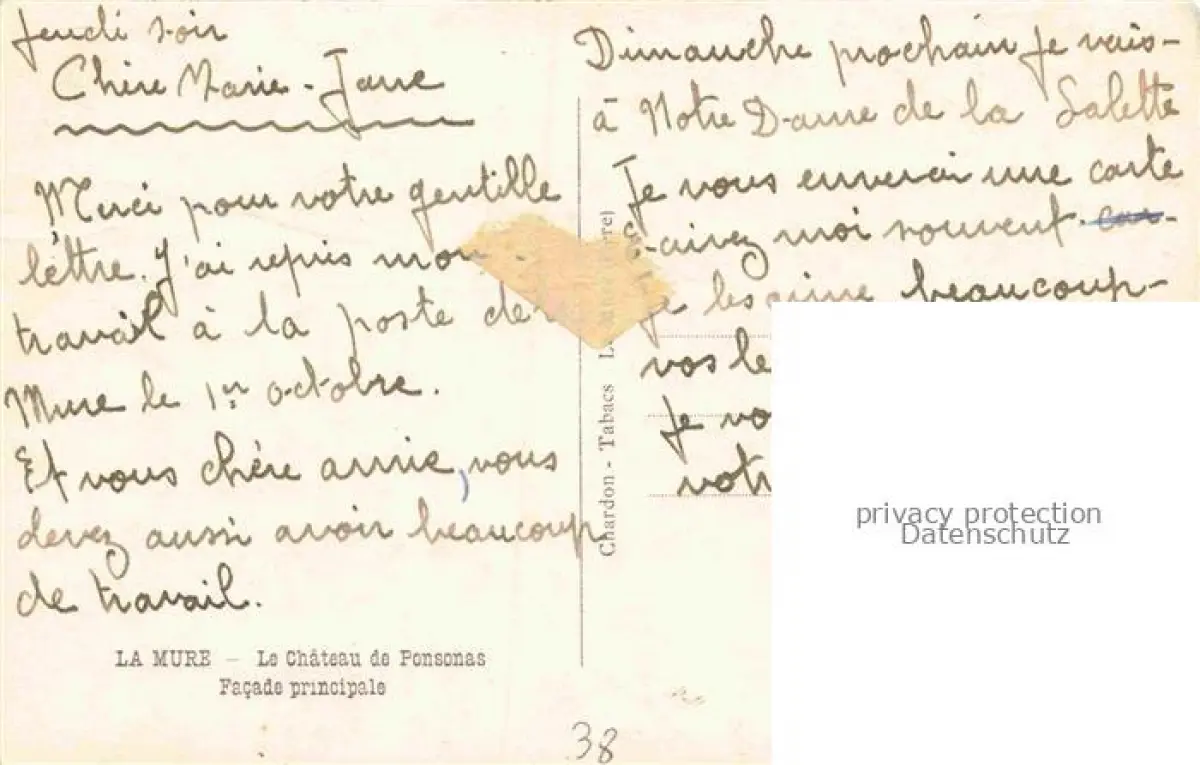 Jeudi soir
Chère Marie-Jane
Merci pour votre gentille
léttre. J'ai repris mon
travail à la poste de
Mure le 1er octobre.
Et vous chère amie, vous
devez aussi avoir beaucoup
de travail.
LA MURE — Le Château de Ponsonas
Façade principale
38
Chardon - Tabacs
Dimanche prochain je vais
à Notre Dame de la Salette
Je vous enverai une carte
moi souvent.
les aime beaucoup
vos le
Je vo
votr
privacy protection
Datenschutz